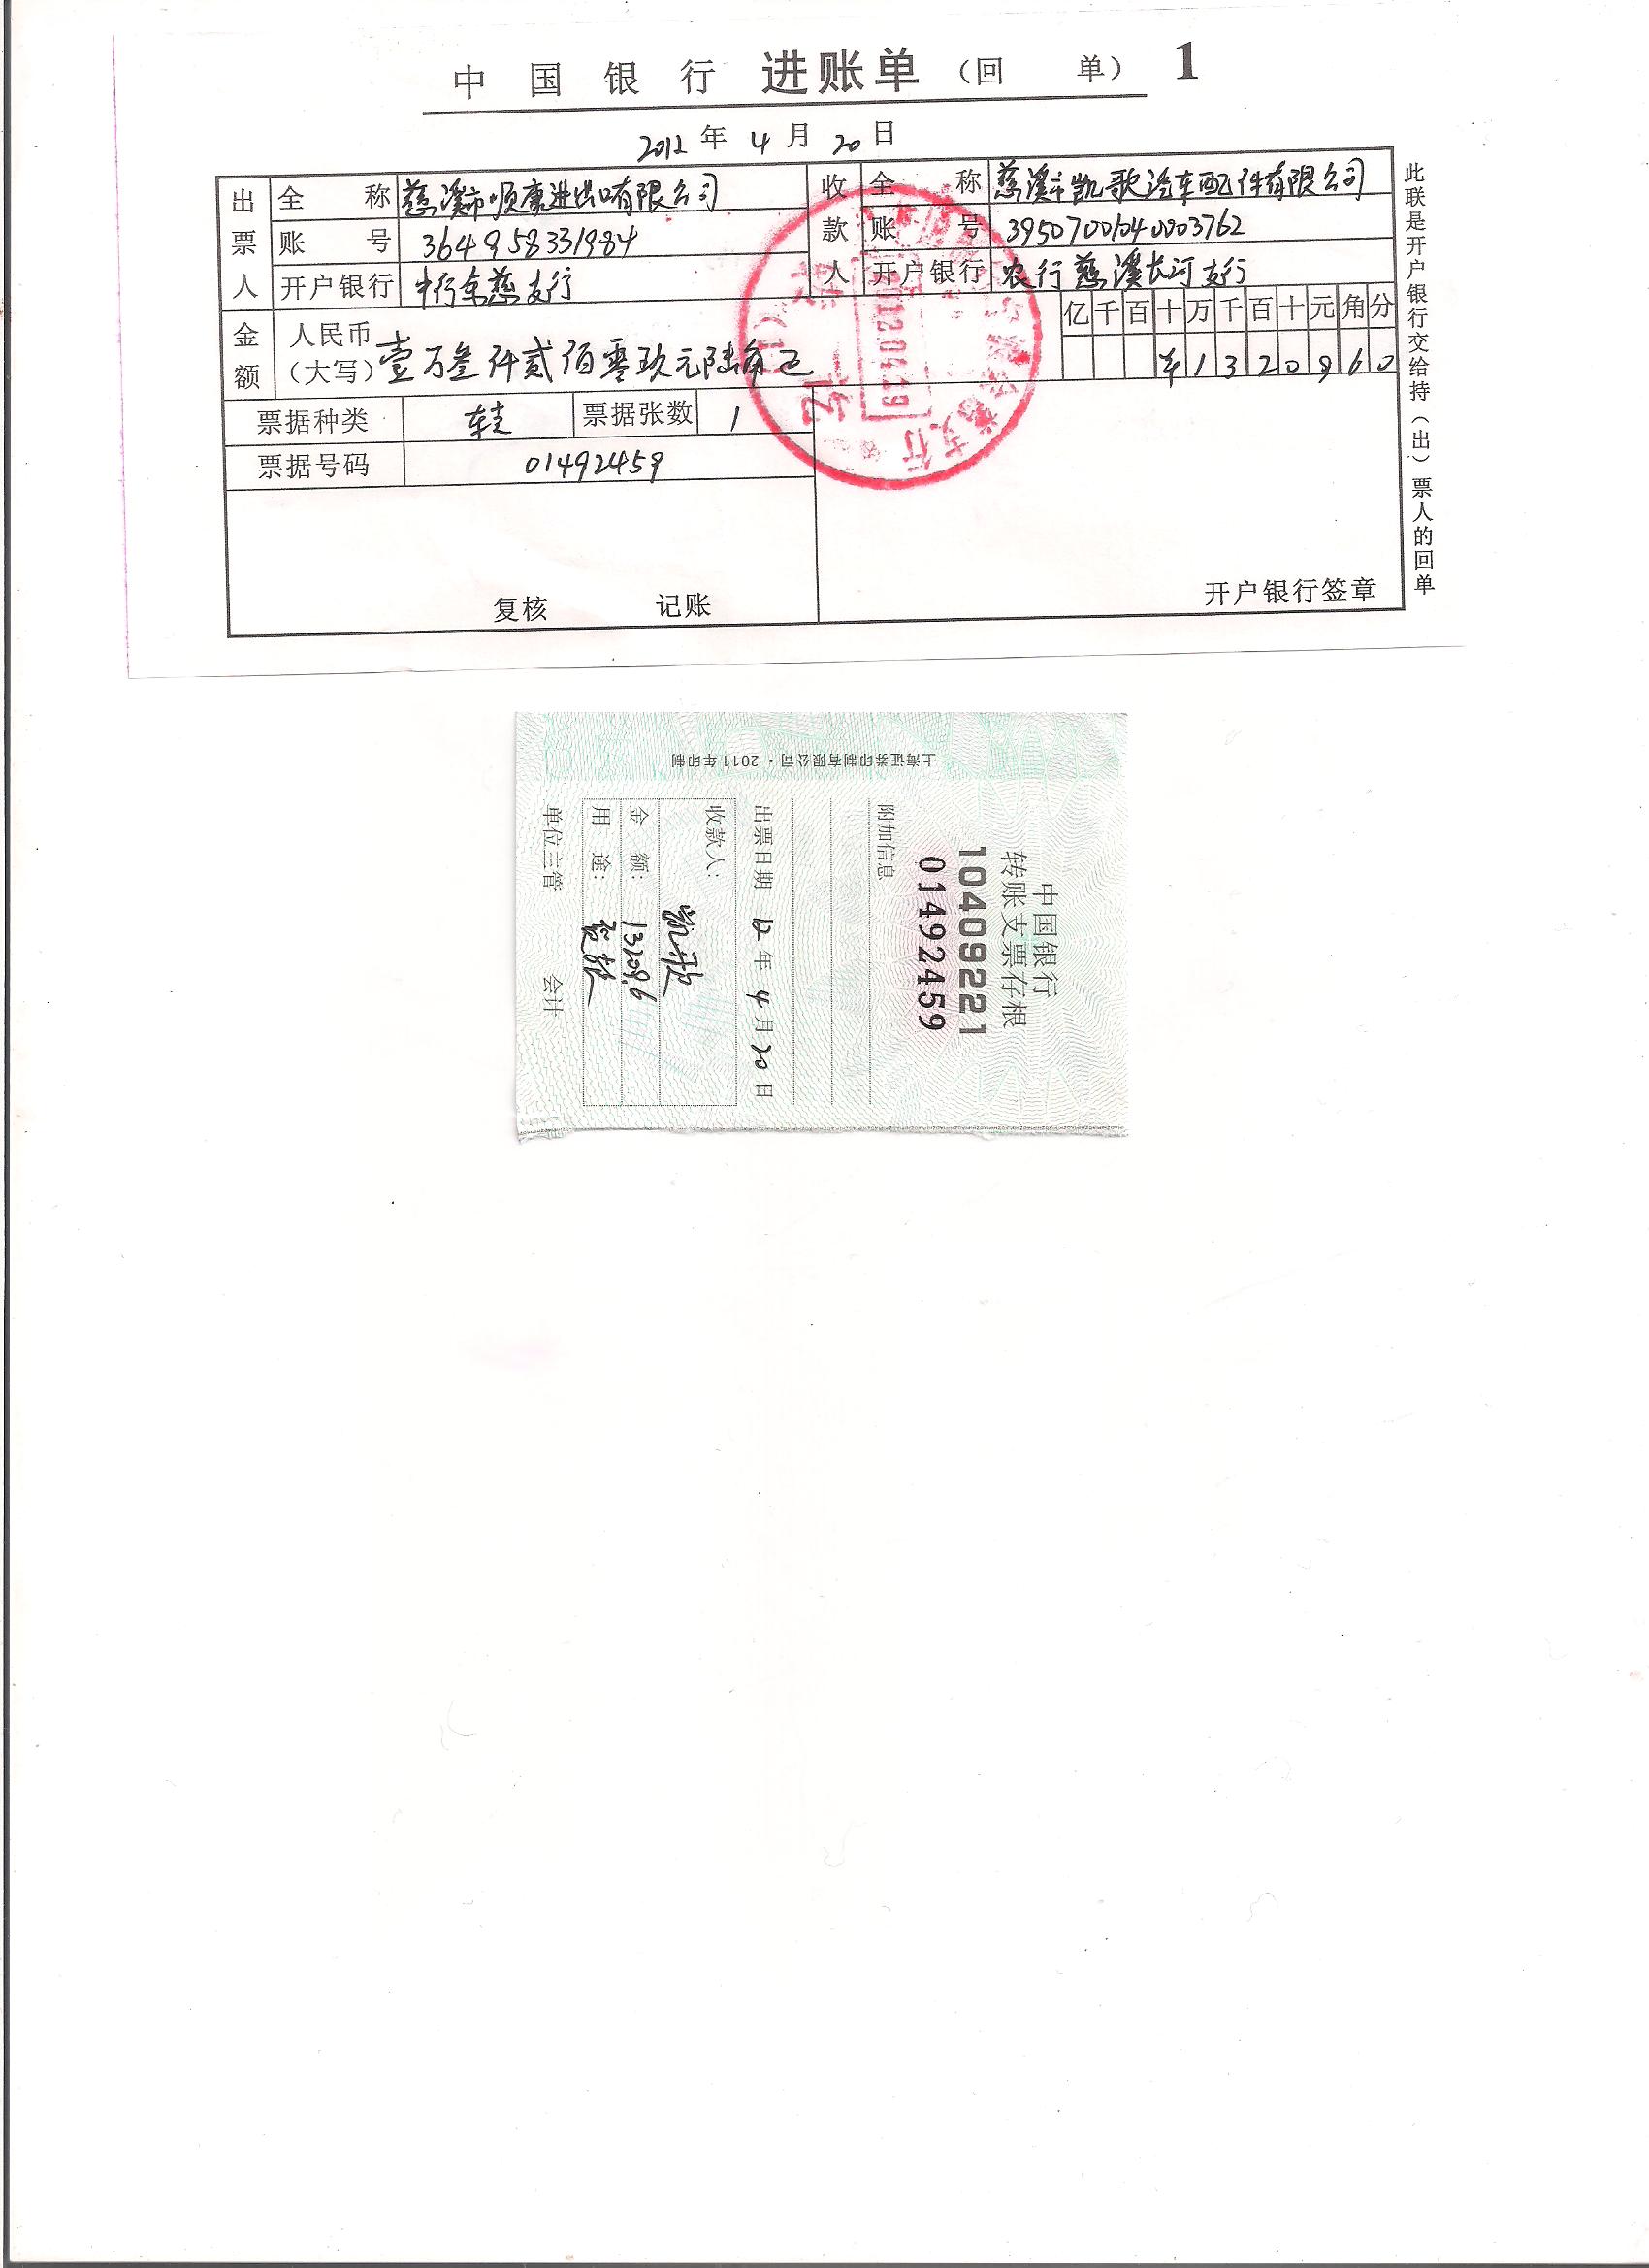 中国银行 进账单（回 单） 1
2012年4月20日
出票人 全称 慈溪市顺康进出口有限公司 收款人 全称 慈溪市凯歌汽车配件有限公司
账号 364958331984 账号 39507001040003762
开户银行 中行余慈支行 开户银行 农行慈溪长河支行
金额 人民币（大写） 壹万叁仟贰佰零玖元陆角正 亿千百十万千百十元角分
¥1320960
票据种类 转支 票据张数 1
票据号码 01492459
复核 记账 开户银行签章
此联是开户银行交给持（出）票人的回单
2012.04.19
上海证券印制有限公司·2011年印制
中国银行
转账支票存根
10409221
01492459
附加信息
出票日期 12年4月20日
收款人：
凯歌
金额：13209.6
用途：货款
单位主管 会计